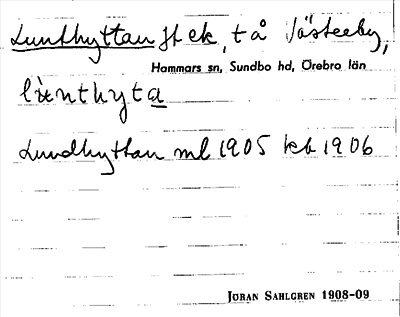 Lunthyttan jt ek, t å Västeeby,
Hammars sn, Sundbo hd, Örebro län
lùnthyta
Lundhyttan ml 1905 kb 1906
JÖRAN SAHLGREN 1908-09